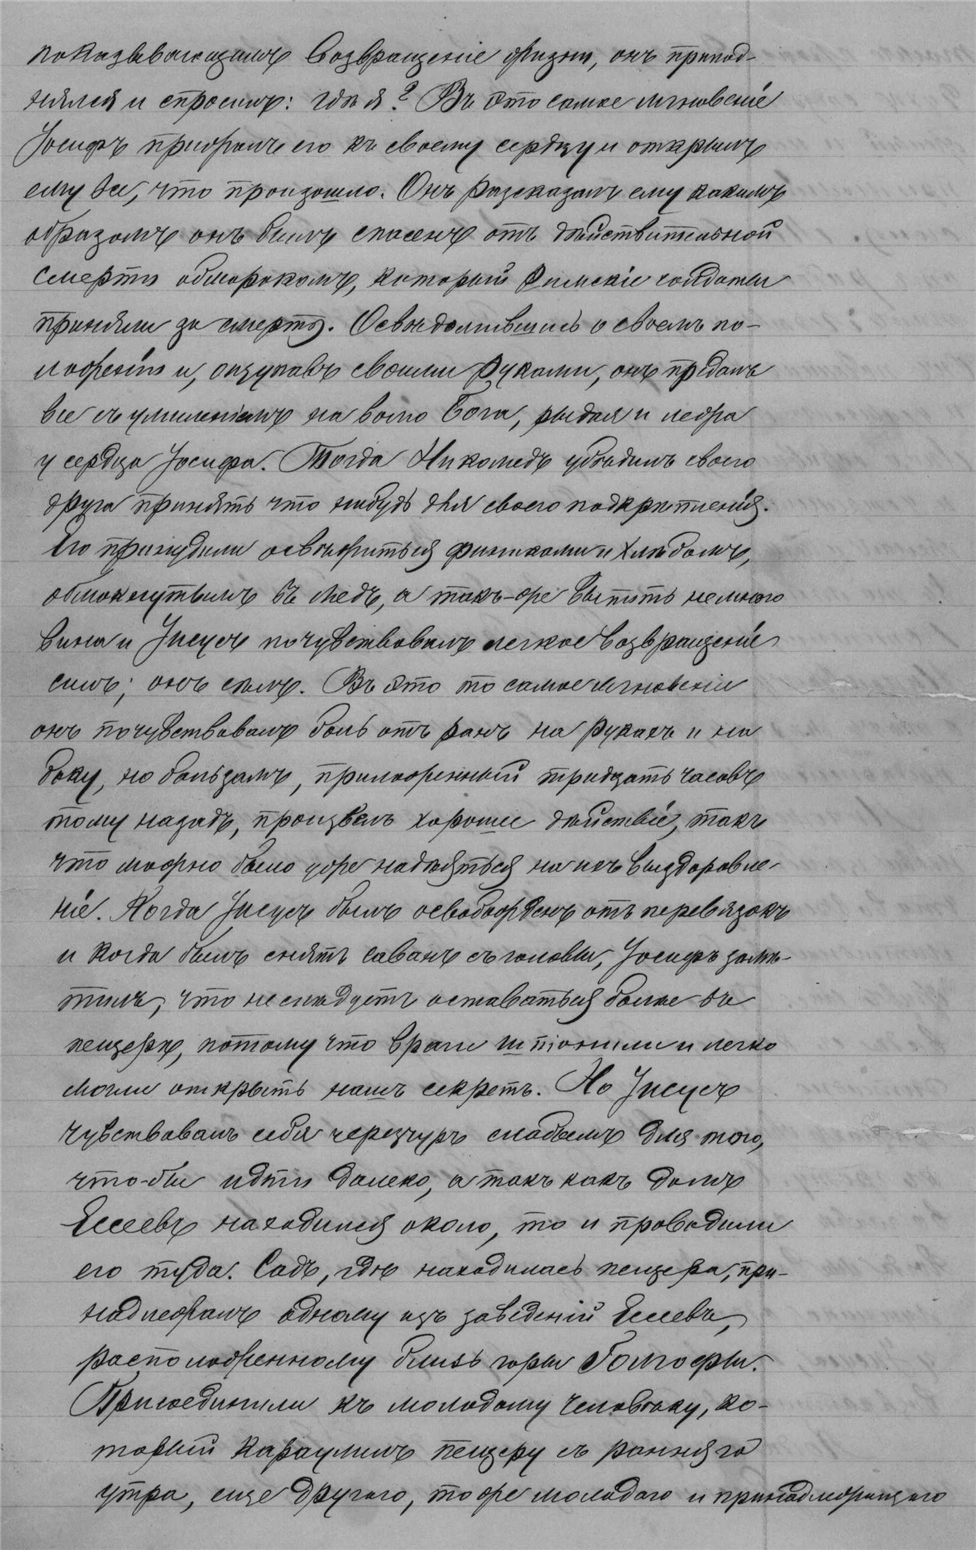 показывающимъ возвращеніе жизни, онъ припод-
нялся и спросилъ: гдѣ я? Въ это самое мгновеніе
Іосифъ прижалъ его къ своему сердцу и открылъ
ему все, что произошло. Онъ разсказалъ ему какимъ
образомъ онъ былъ спасенъ отъ дѣйствительной
смерти обморокомъ, который Римскіе солдаты
приняли за смерть. Освѣдомившись о своемъ по-
ложеніи и, ощупавъ своими руками, онъ предалъ
все съ умиленіемъ на волю Бога, рыдая и лежа
у сердца Іосифа. Тогда Никомедъ убѣдилъ своего
друга принять что нибудь для своего подкрѣпленія.
Его принудили освѣжиться финиками и хлѣбомъ,
обмокнутымъ въ медъ, а такъ-же выпить немного
вина и Іисусъ почувствовалъ легкое возвращеніе
силъ; онъ сѣлъ. Въ это то самое мгновеніе
онъ почувствовалъ боль отъ ранъ на рукахъ и на
боку, но бальзамъ, приложенный тридцать часовъ
тому назадъ, произвелъ хорошее дѣйствіе, такъ
что можно было уже надѣяться на ихъ выздоровле-
ніе. Когда Іисусъ былъ освобожденъ отъ перевязокъ
и когда былъ снятъ саванъ съ головы, Іосифъ замѣ-
тилъ, что не слѣдуетъ оставаться болѣе въ
пещерѣ, потому что враги шпіонили и легко
могли открыть нашъ секретъ. Но Іисусъ
чувствовалъ себя черезчуръ слабымъ для того,
что-бы идти далеко, а такъ какъ домъ
Ессеевъ находился около, то и проводили
его туда. Садъ, гдѣ находилась пещера, при-
надлежалъ одному изъ заведеній Ессеевъ,
расположенному близь горы Голгофы.
Присоединили къ молодому человѣку, ко-
торый караулилъ пещеру съ ранняго
утра, еще другого, тоже молодого и принадлежащаго